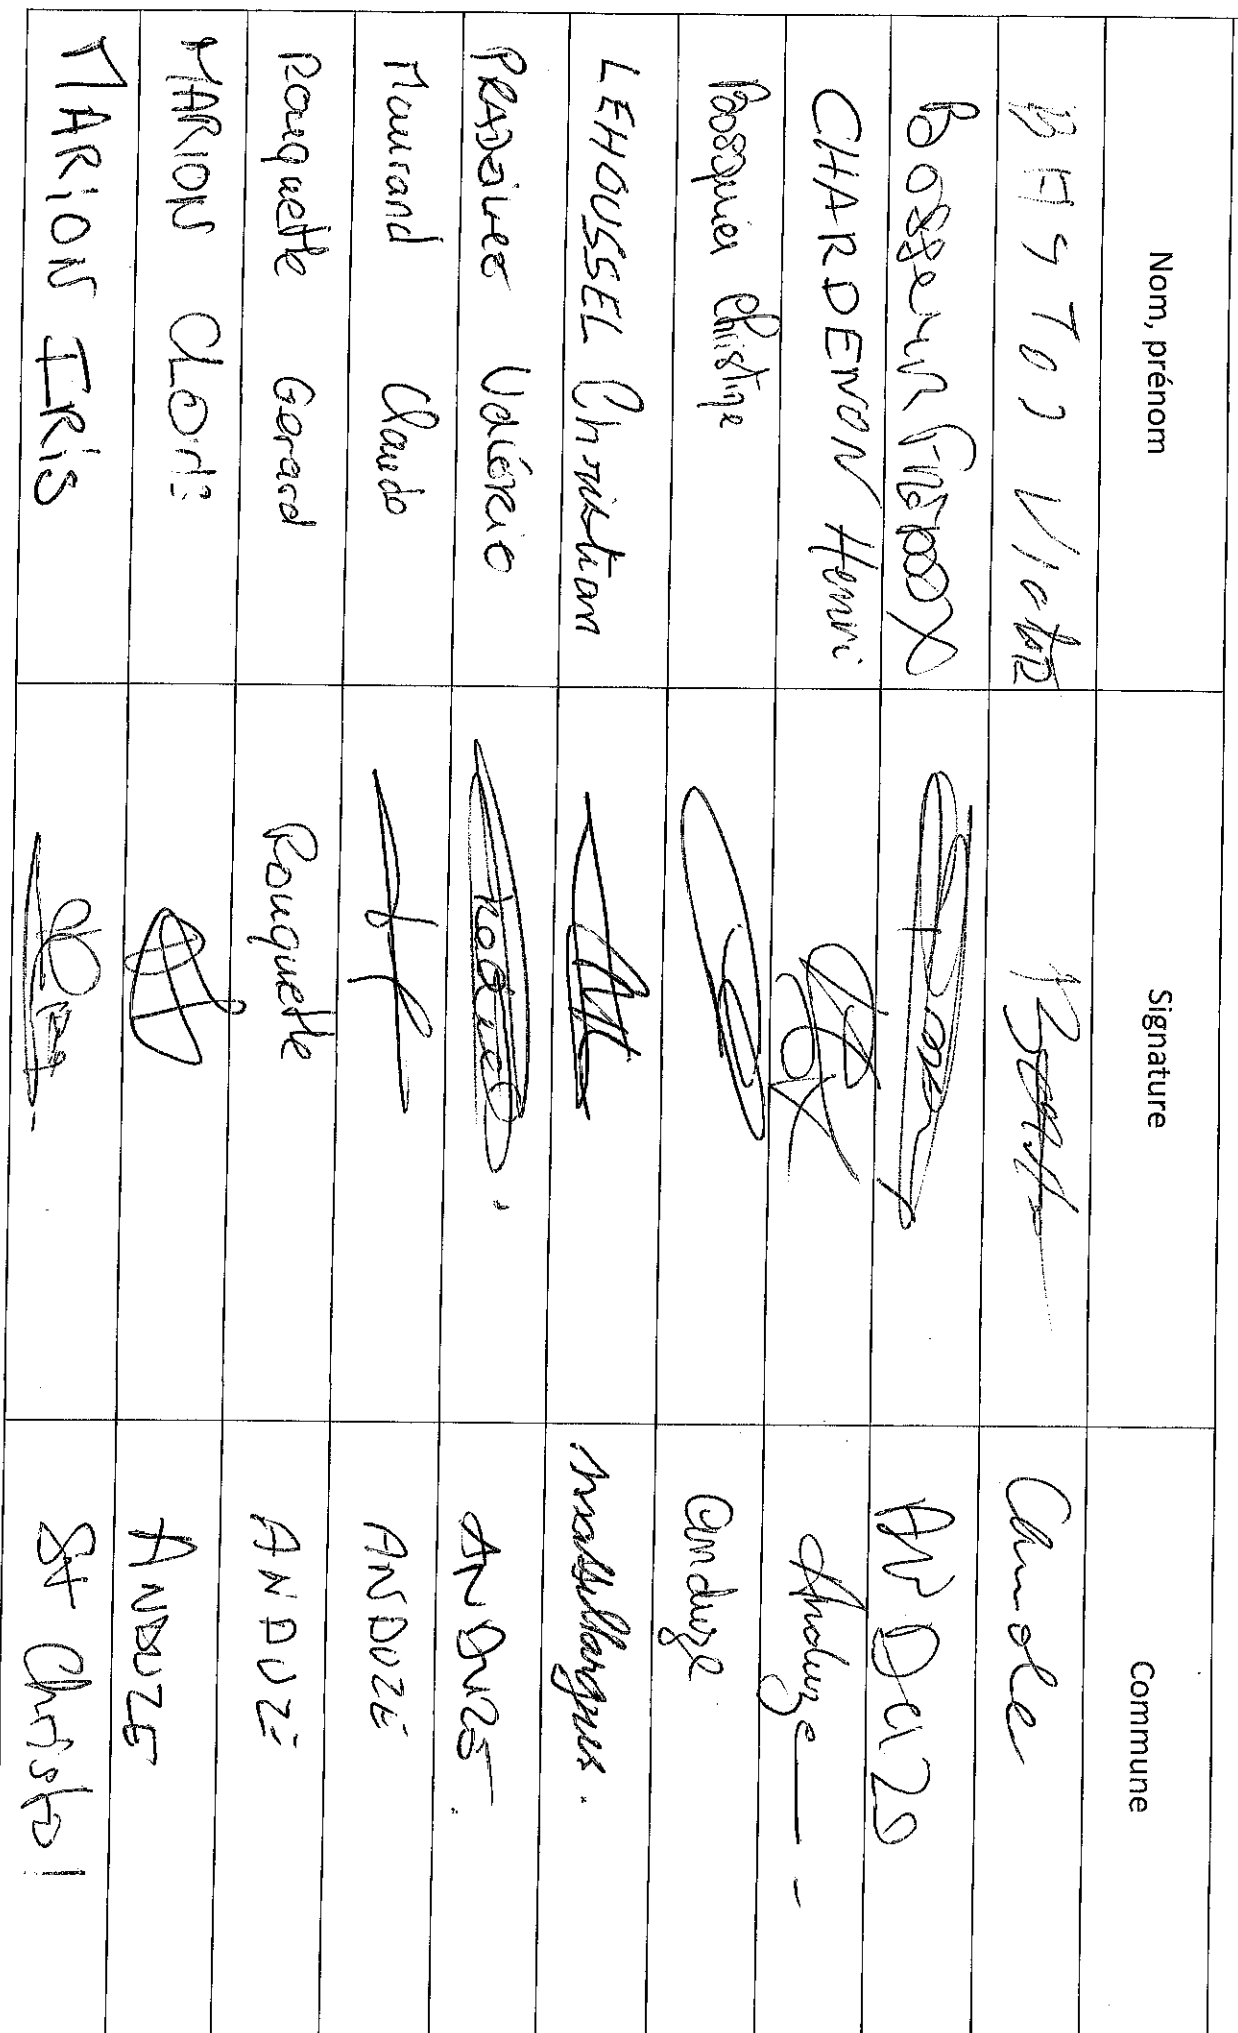 Nom, prénom Signature Commune
BASTOJ Victor
Bosseur
CHARDENON Henri Anduze
Bosquier Christine Anduze
LEHOUSSEL Christian Massillargues.
PRADEILLES Valérie ANDUZE.
Maurand Claude ANDUZE
Rouquette Gerard Rouquette ANDUZE
MARION ANDUZE
MARION IRIS St Christol